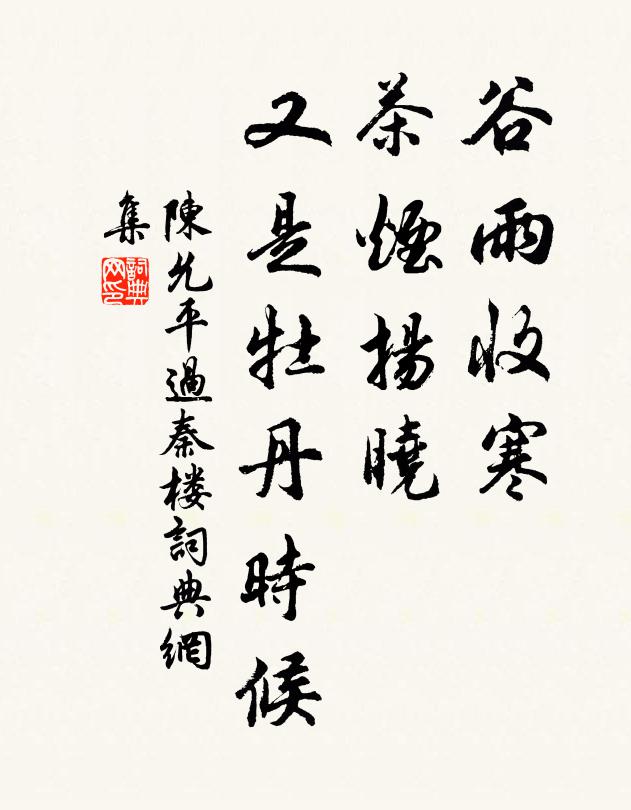 谷雨收寒
茶煙揚曉
又是牡丹時候
陳允平過秦楼詞典網
集
詞典網印